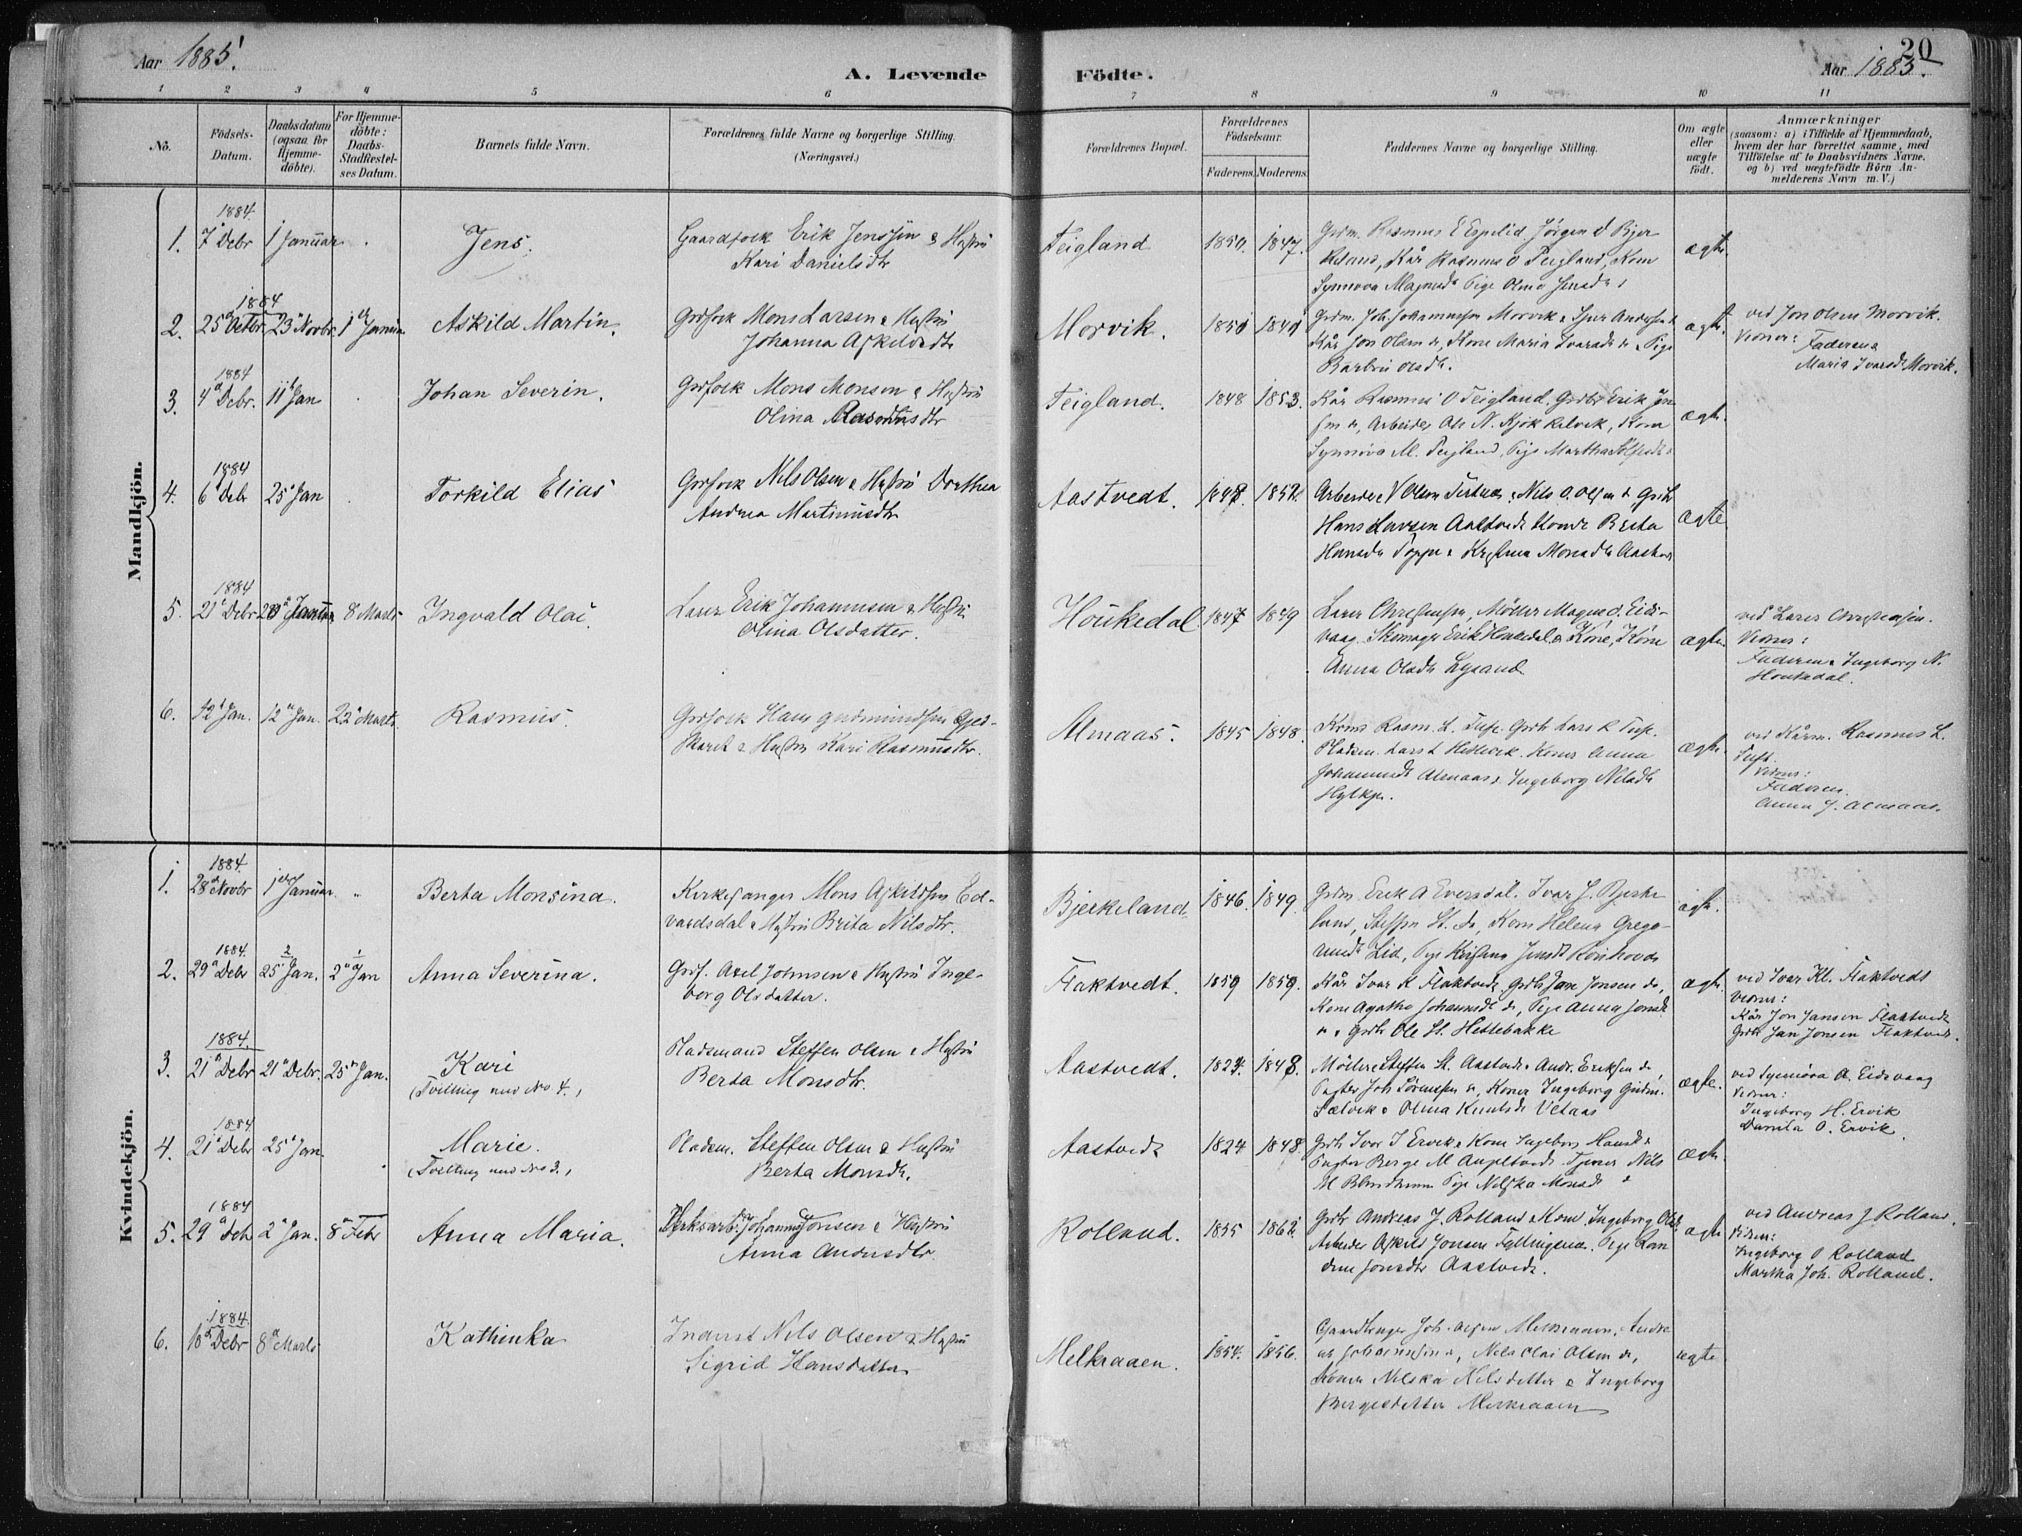 Aar 1885.
A. Levende
Födte.
20
Aar 1885.
1 2 3 4 5 6 7 8 9 10 11
No.
Födsels-Datum.
Daabsdatum (ogsaa for Hjemme-döbte).
For Hjemme-döbte: Daabs-Stadfæstel-ses Datum.
Barnets fulde Navn.
Forældrenes fulde Navne og borgerlige Stilling. (Næringsvei.)
Forældrenes Bopæl.
Forældrenes Födselsaar.
Faderens. Moderens.
Faddernes Navne og borgerlige Stilling.
Om ægte eller uægte födt.
Anmærkninger
(saasom: a) i Tilfælde af Hjemmedaab, hvem der har forrettet samme, med Tilföielse af to Daabsvidners Navne, og b) ved uægtefödte Börn An-melderens Navn m. V.)
Mandkjön.
1884
1. 7 Debr 1 Januar Jens.
Gaardfolk Erik Jenssen & Hustru
Kari Danielsdtr
Teigland 1850. 1847.
Grdm. Rasmus E Espelid Jörgen
Kår Rasmus O Teigland, Kone
Synnöva Magnusd Pige Olina Jensd
ægte.
1884
2. 25 Octbr. 23 Novbr. 1 Januar Askild Martin.
Grdfolk Mons Larsen & Hustru
Johanna Askeldsdtr
Morvik. 1851 1841
Grdm. Joh. Johannessen Morvik
Kår Jon Olsen do, Kone Maria Ivarsd do, Pige
Barbru Olsdtr.
ægte.
ved Jon Olsen Morvik.
Vidner:
Faderen &
Maria Ivarsd Morvik.
1884
3. 4 Debr. 11 Jan Johan Severin.
Grdfolk Mons Monsen & Hustru
Olina Rasmusdtr
Teigland. 1848 1853.
Kår Rasmus O Teigland. Grdbr Erik Jen-
sen do, Arbeider Ole N. Kjøkkelvik, Kone
Synnöva M. Teigland, Pige Martha
ægte.
1884
4. 6 Debr 25 Jan Torkild Elias
Grdfolk Nils Olsen & Hustru Dorthea
Andrea Martinusdtr
Aastvedt. 1848. 1852.
Nils O. Olsen
Hans Larsen Aastvedt Koner Berta
Hansdtr Toppe & Kristina Monsdtr Aastvedt
ægte
1884
5. 21 Debr 8 Marts Ingvald Olai.
Lærer Erik Johannesen & Hustru
Olina Olsdatter.
Houkedal 1847 1849
Lærer Christensen, Möller Magne d. Eids-
vaag. Skomager Erik Houkedal & Kone, Kone
Anna Olsdtr
ægte.
ved Lærer Christensen.
Vidner:
Faderen & Ingeborg N.
Houkedal.
6. 12 Jan. 12 Jan. 22 Marts Rasmus.
Grdfolk Hans Gudmundsen
& Hustru Kari Rasmusdtr.
Almaas. 1845 1848.
Rasm. L. Tuft. Grdb Lars R Tuft.
Pladsm. Lars L Hetlevik. Koner Anna
Johannesd Almaas & Ingeborg Nilsdtr
Hylkje.
ægte.
ved Kårm. Rasmus L.
Tuft.
Vidner:
Faderen.
Anna J. Almaas.
Kvindekjön.
1884.
1. 28 Novbr 1 Januar Berta Monsina.
Kirkesanger Mons Askildsen Ed-
vardsdal & Hustru Brita Nilsdtr.
Bjerkeland. 1846. 1849.
Grdm. Erik A Eversdal. Ivar J. Bjerke-
land, Steffen St. do, Kone Helena Grego-
riusd Lid, Pige Jensd
ægte.
1884.
2. 29 Debr 25 Jan. 2 Jan Anna Severina.
Grdf. Axel Johnsen & Hustru Inge-
borg Olsdatter.
Flaktvedt. 1859 1859.
Kår Ivar K Flaktvedt, Grdb Jan Jonsen do,
Kone Agatha Johannesd do, Pige Anna Jonsd
do & Grdb Ole St. Hettebakke
ægte.
ved Ivar Kl. Flaktvedt
Vidner:
Kår Jon Jansen Flaktvedt
Grdb Jan Jonsen Flaktvedt.
1884.
3. 21 Debr 21 Debr. 25 Jan. Kari
(Tvilling med No 4.)
Pladsmand Steffen Olsen & Hustru
Berta Monsdtr.
Aastvedt. 1824. 1848.
Möller Steffen St. Aastvedt, Andr. Eriksen do,
Koner Ingeborg Gudm.
& Olina Knutsd Vetaas
ægte.
ved Synnöva A. Eidsvaag
Vidner:
Ingeborg H. Ervik
O. Ervik.
1884
4. 21 Debr 25 Jan. Marie.
(Tvilling med No 3.)
Pladsm. Steffen Olsen & Hustru
Berta Monsdtr.
Aastvedt 1824 1848.
Grdb Ivar I Ervik & Kone Ingeborg Hansd do
Berge M Tjener Nils
M Pige Nilska Monsd
ægte.
1884
5. 29 Debr 2 Jan. 8 Febr Anna Maria.
Johannes Jonsen & Hustru
Anna Andersdtr.
Rolland. 1855 1862
Grdb Andreas J. Rolland & Kone Ingeborg Olsd
Arbeider Askild Jonsen Pige
Jonsdtr Aastvedt.
ægte
ved Andreas J Rolland.
Vidner:
Ingeborg O Rolland
Martha Joh. Rolland.
1884.
6. 10 Debr 8 Marts Kathinka
Inderst Nils Olsen & Hustru
Sigrid Hansdatter
Melkraaen. 1854. 1856.
Joh. Olsen Melkraaen, Andre-
as Johannesen do, Nils Olai Olsen do,
Koner Nilska Nilsdatter & Ingeborg
Bergesdatter Melkraaen
ægte